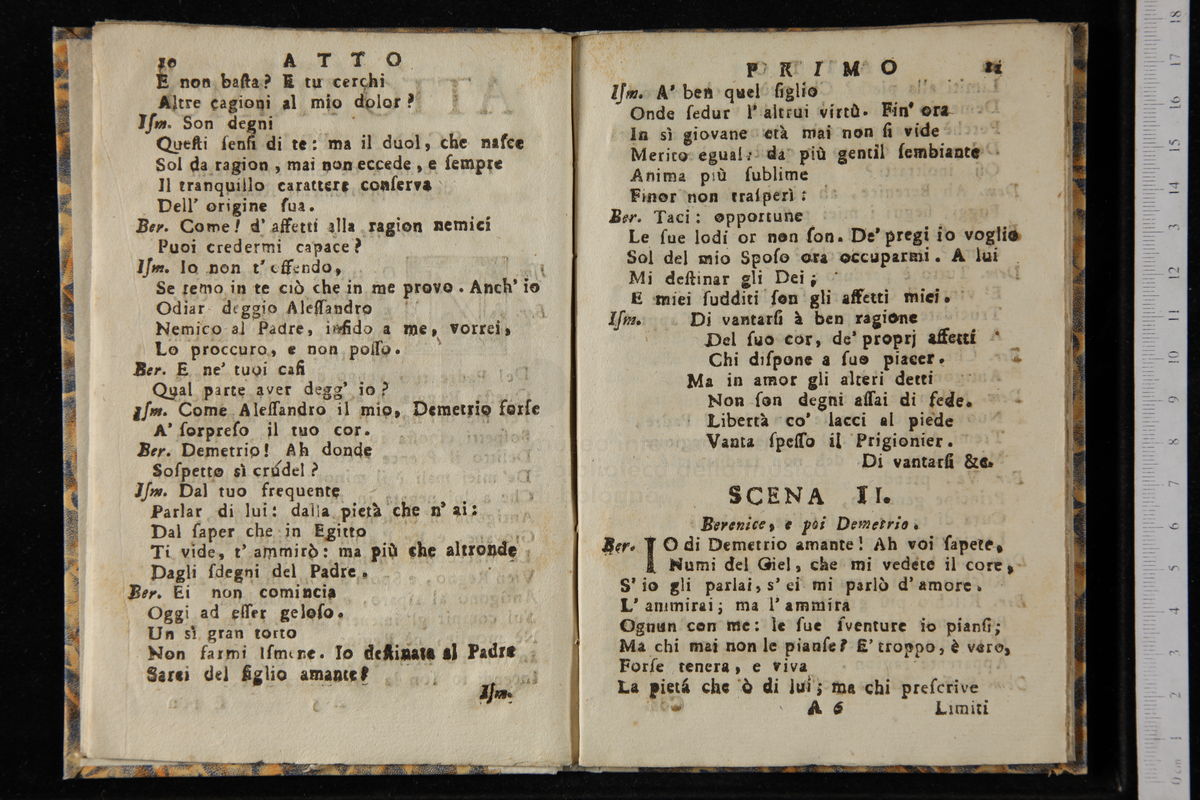 10 ATTO
E non baſta? E tu cerchi
Altre cagioni al mio dolor?
Iſm. Son degni
Queſti ſenſi di te: ma il duol, che naſce
Sol da ragion, mai non eccede, e ſempre
Il tranquillo carattere conſerva
Dell' origine ſua.
Ber. Come! d' affetti alla ragion nemici
Puoi credermi capace?
Iſm. Io non t' offendo,
Se temo in te ciò che in me provo. Anch' io
Odiar deggio Aleſſandro
Nemico al Padre, infido a me, vorrei,
Lo proccuro, e non poſſo.
Ber. E ne' tuoi caſi
Qual parte aver degg' io?
Iſm. Come Aleſſandro il mio, Demetrio forſe
A' ſorpreſo il tuo cor.
Ber. Demetrio! Ah donde
Soſpetto sì crudel?
Iſm. Dal tuo frequente
Parlar di lui: dalla pietà che n' ai:
Dal ſaper che in Egitto
Ti vide, t' ammirò: ma più che altronde
Dagli ſdegni del Padre.
Ber. Ei non comincia
Oggi ad eſſer geloſo.
Un sì gran torto
Non farmi Iſmene. Io deſtinata al Padre
Sarei del figlio amante?
Iſm.
PRIMO 11
Iſm. A' ben quel figlio
Onde ſedur l' altrui virtù. Fin' ora
In sì giovane età mai non ſi vide
Merito egual: da più gentil ſembiante
Anima più ſublime
Finor non traſperì:
Ber. Taci: opportune
Le ſue lodi or non ſon. De' pregi io voglio
Sol del mio Spoſo ora occuparmi. A lui
Mi deſtinar gli Dei;
E miei ſudditi ſon gli affetti miei.
Iſm. Di vantarſi à ben ragione
Del ſuo cor, de' proprj affetti
Chi diſpone a ſuo piacer.
Ma in amor gli alteri detti
Non ſon degni aſſai di fede.
Libertà co' lacci al piede
Vanta ſpeſſo il Prigionier.
Di vantarſi &c.
SCENA II.
Berenice, e poi Demetrio.
Ber. IO di Demetrio amante! Ah voi ſapete,
Numi del Giel, che mi vedete il core,
S' io gli parlai, s' ei mi parlò d' amore.
L' animirai; ma l' ammira
Ognun con me: le ſue ſventure io pianſi;
Ma chi mai non le pianſe? E' troppo, è vero,
Forſe tenera, e viva
La pietá che ò di lui; ma chi preſcrive
A 6 Limiti